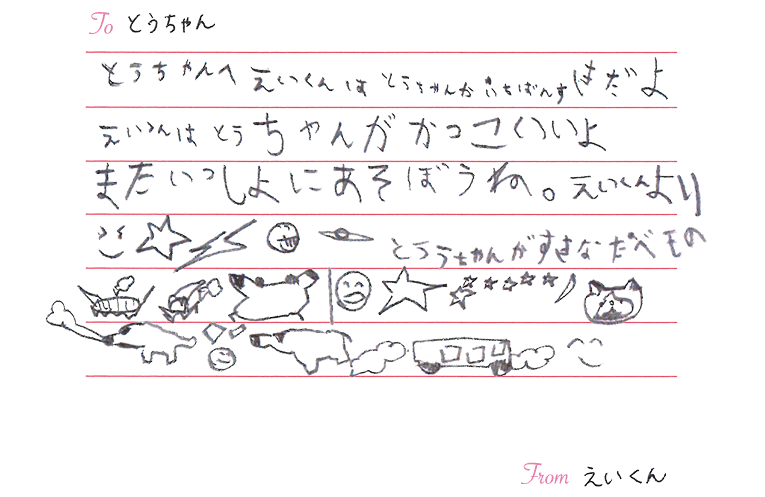 To とうちゃん
とうちゃんへ えいくんは とうちゃんが いちばんすきだよ
えいくんは とうちゃんが かっこいいよ
またいっしょにあそぼうね。えいくんより
とうちゃんがすきなたべもの
From えいくん